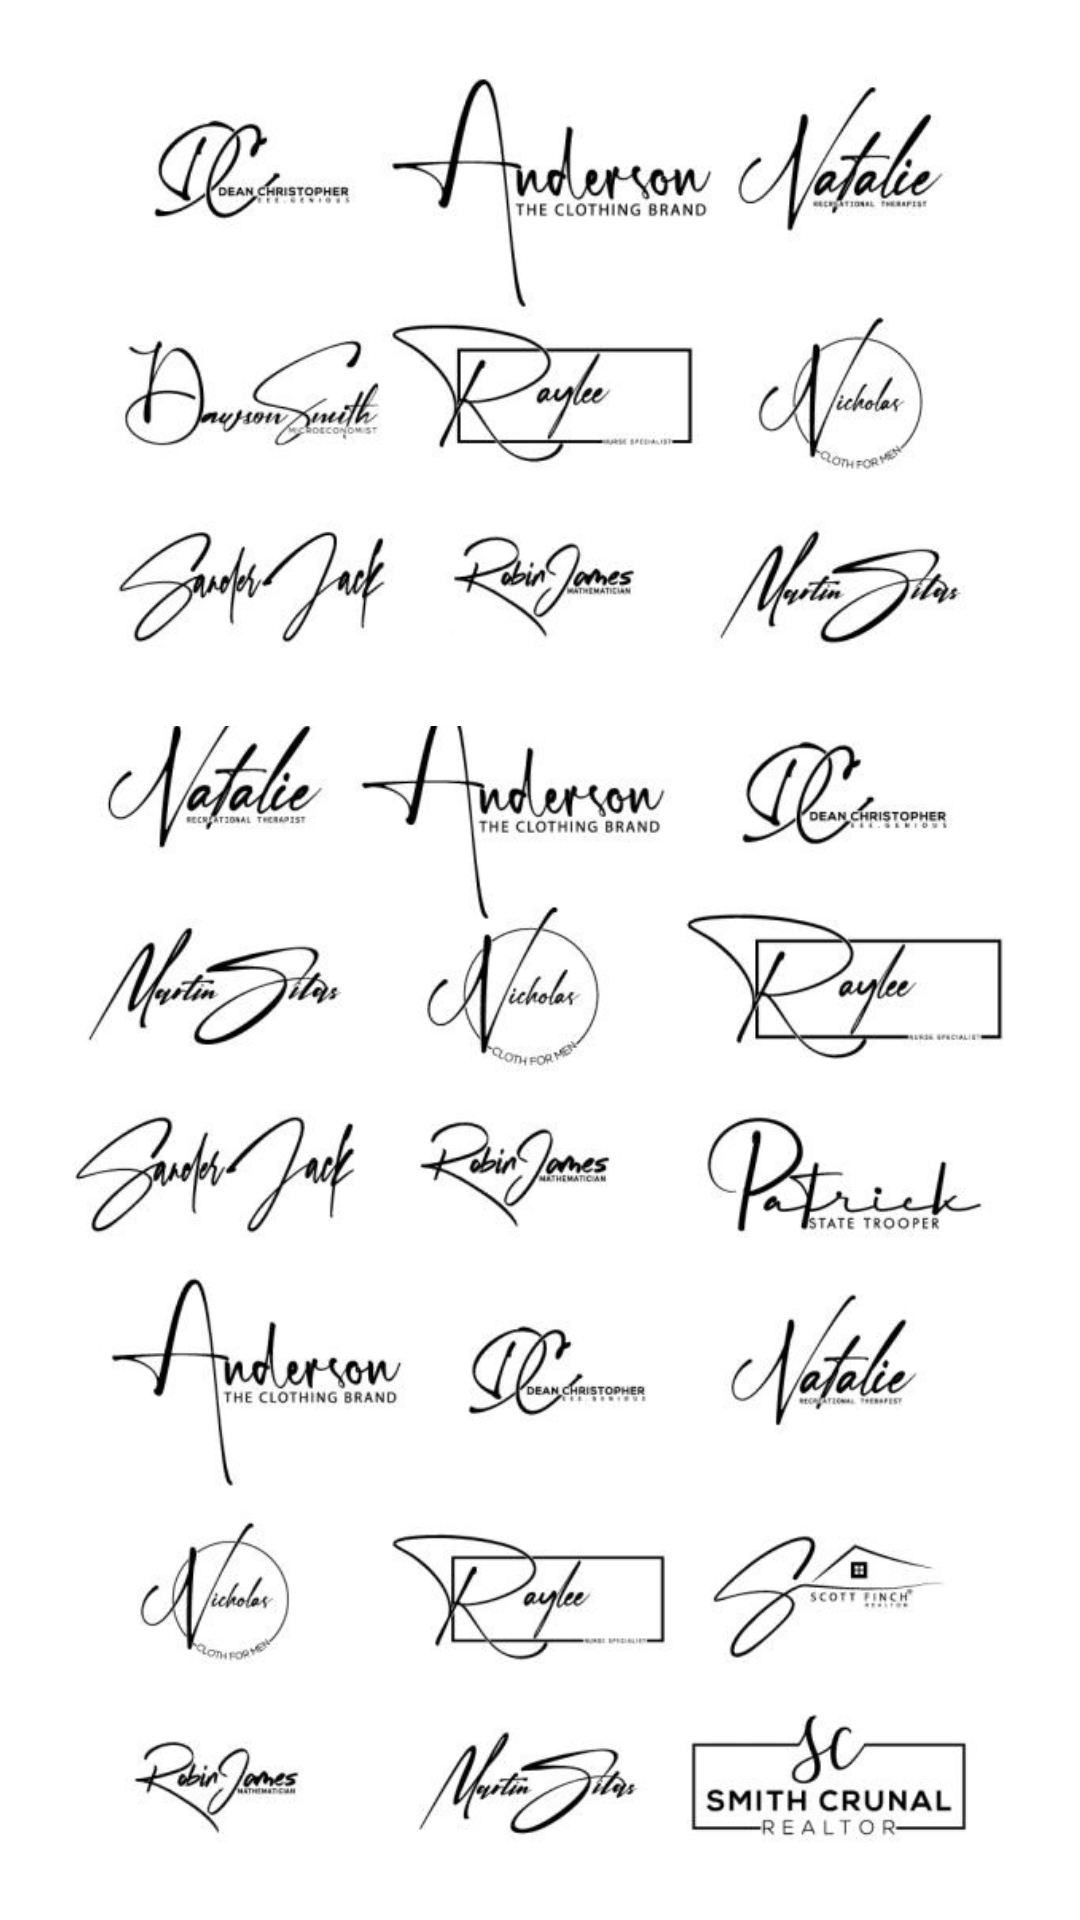 DC
DEAN CHRISTOPHER
EEE.GENIOUS
Anderson
THE CLOTHING BRAND
Natalie
RECREATIONAL THERAPIST
Dawson Smith
MICROECONOMIST
Raylee
NURSE SPECIALIST
Nicholas
CLOTH FOR MEN
Sander Jack
Robin James
MATHEMATICIAN
Martin Silas
Natalie
RECREATIONAL THERAPIST
Anderson
THE CLOTHING BRAND
DC
DEAN CHRISTOPHER
EEE.GENIOUS
Martin Silas
Nicholas
CLOTH FOR MEN
Raylee
NURSE SPECIALIST
Sander Jack
Robin James
MATHEMATICIAN
Patrick
STATE TROOPER
Anderson
THE CLOTHING BRAND
DC
DEAN CHRISTOPHER
EEE.GENIOUS
Natalie
RECREATIONAL THERAPIST
Nicholas
CLOTH FOR MEN
Raylee
NURSE SPECIALIST
S
SCOTT FINCH®
REALTOR
Robin James
MATHEMATICIAN
Martin Silas
SC
SMITH CRUNAL
REALTOR